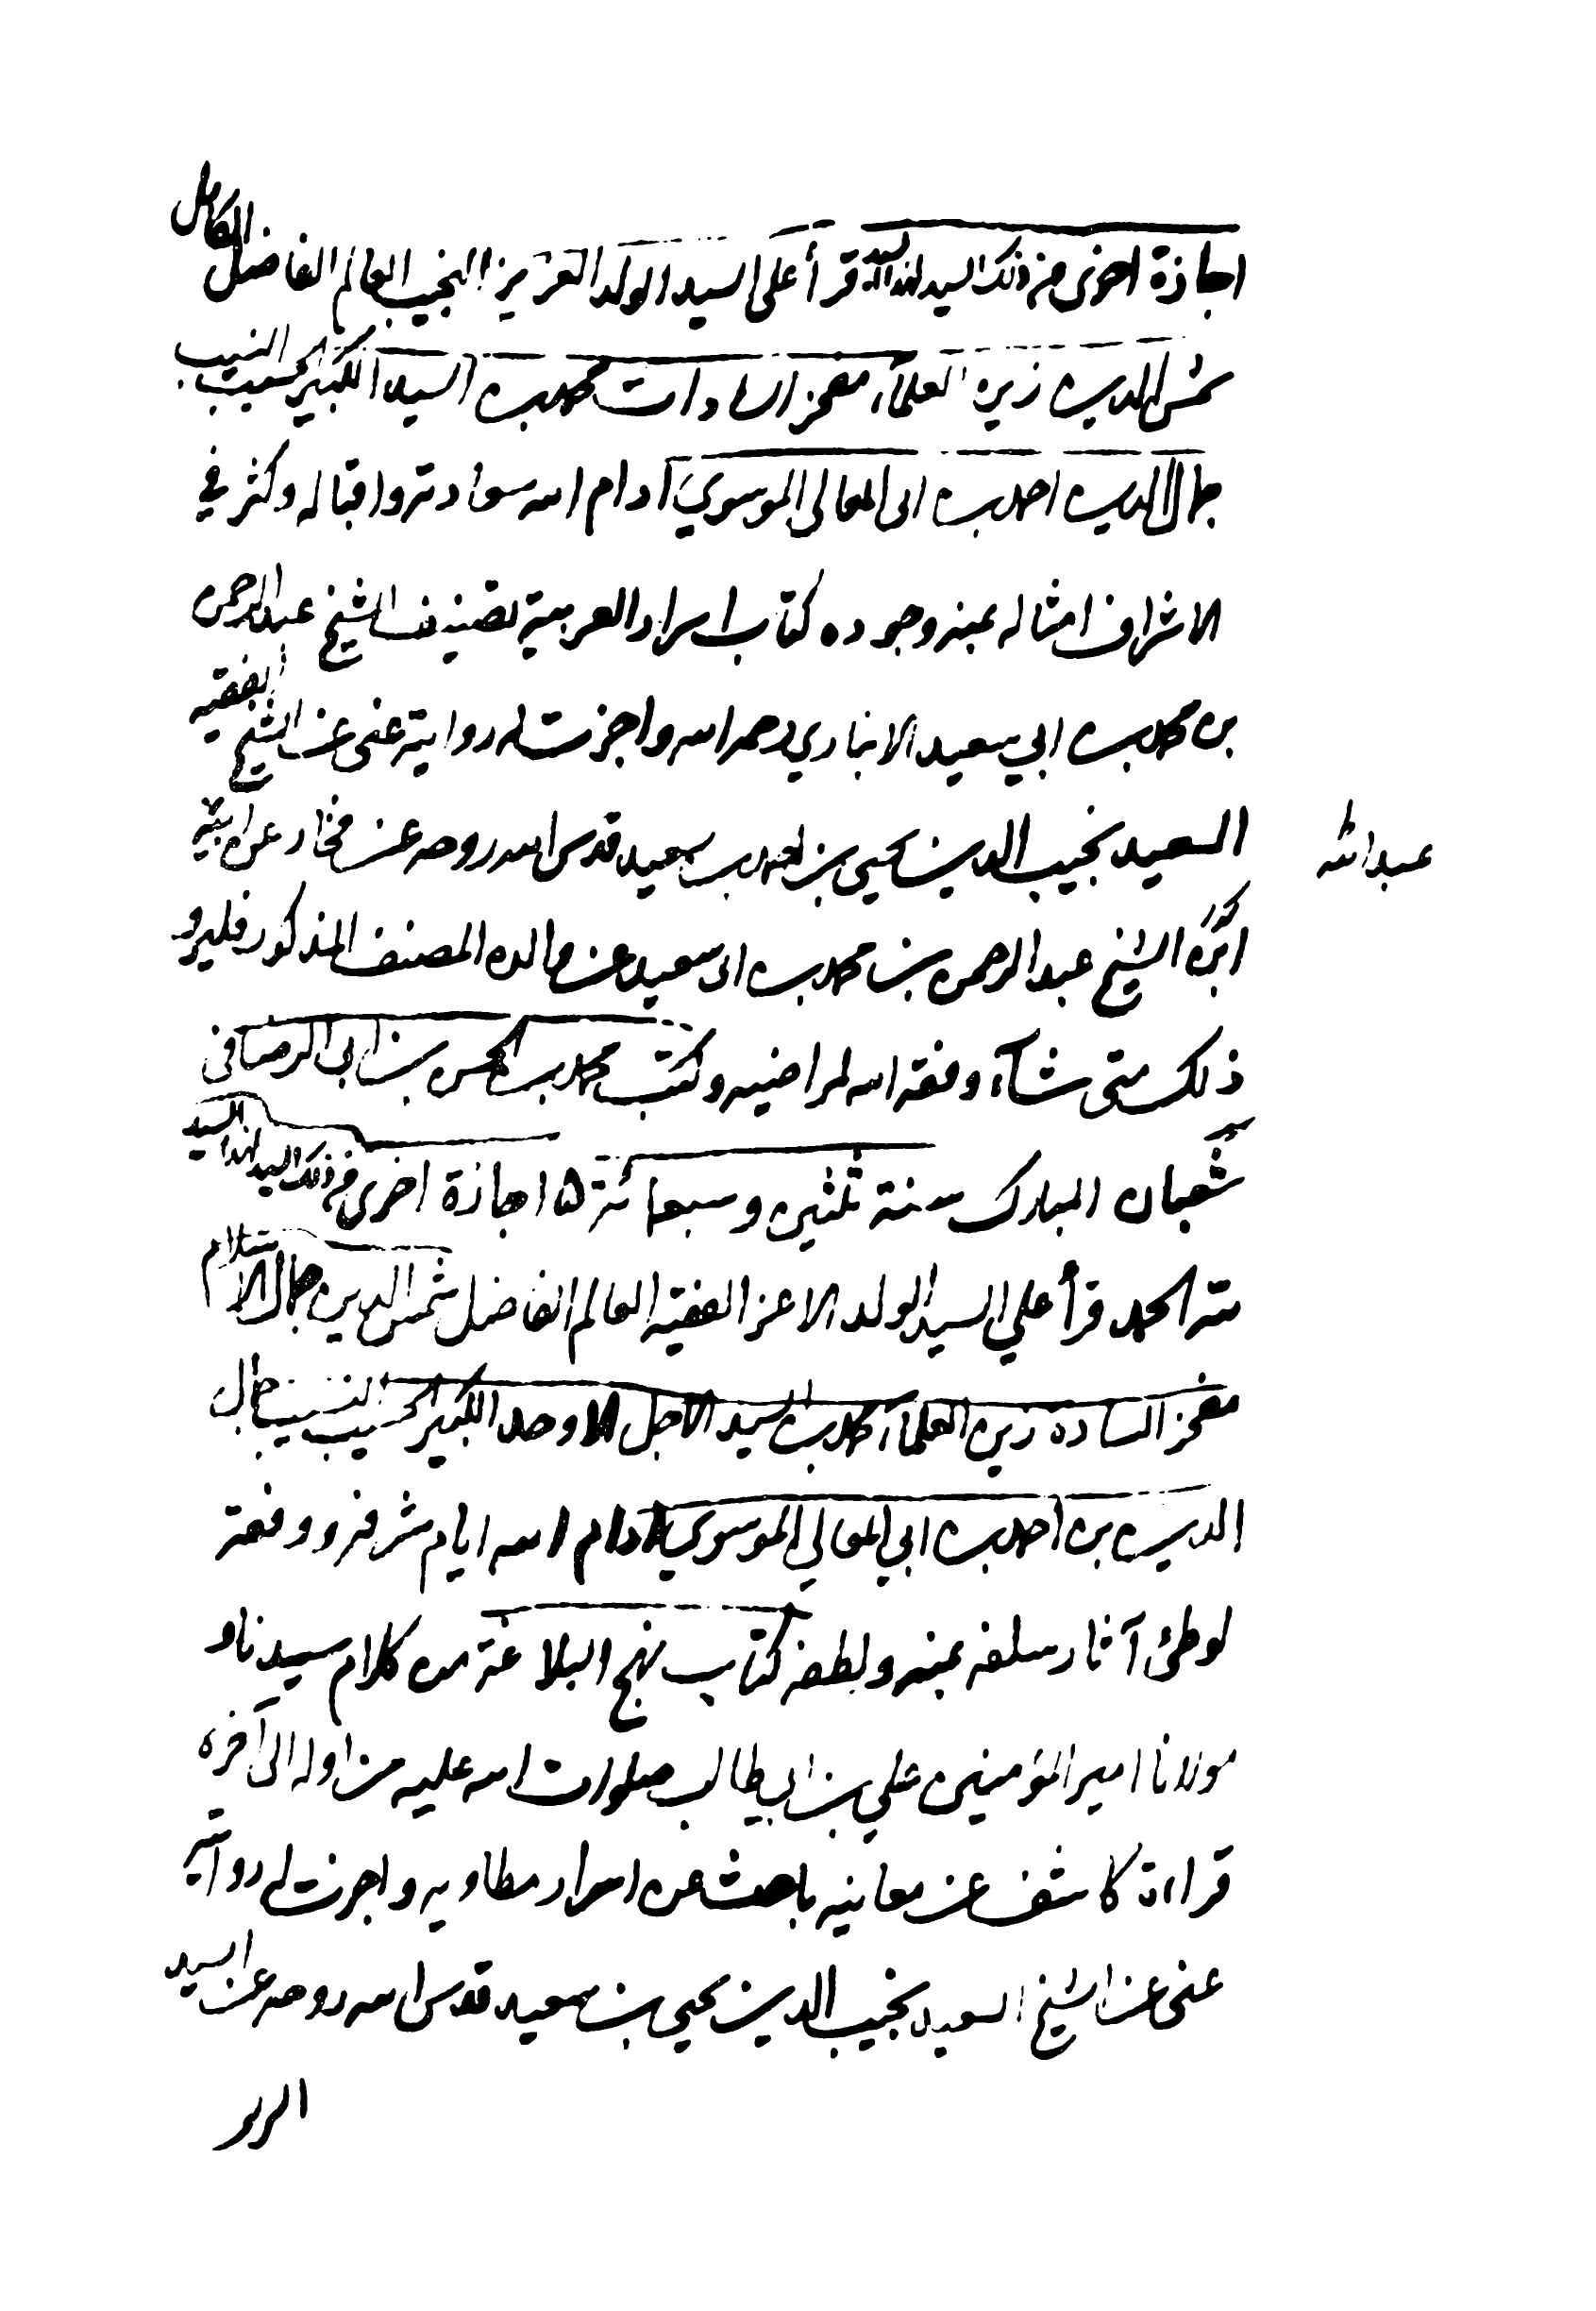 اجازة اخرى من ذلك السيد لهذا السيد قرأ على السيد الولد العزيز النجيب العالم الفاضل الكامل
شمس الدين زين العلمآء مفخر السادات محمد بن السيد الكبير الحسيب النسيب
جمال الدين احمد بن ابى المعالى الموسوي ادام الله سعادته واقباله وكثر في
الاشراف امثاله بمنه وجوده كتاب اسرار العربية تصنيف الشيخ عبدالرحمن
بن محمد بن ابي سعيد الانباري رحمه الله واجزت له روايته عنى عن الشيخ الفقيه
السعيد نجيب الدين يحيى بن احمد بن سعيد قدس الله روحه عن فخار عن
عبدالله
الشيخ عبد الرحمن بن محمد بن ابى سعيد عن والده المصنف المذكور فليرو
ذلك متى شآء وفقه الله لمراضيه وكتب محمد بن الحسن بن ابى الرضا فى
شعبان المبارك سنة ثلثين وسبعمائة ۵ اجازة اخرى من ذلك السيد لهذا السيد
لله الحمد قرأ علي السيد الولد الاعز الفقيه العالم الفاضل شمس الدين جمال الاسلام
مفخر السادة زين العلمآء محمد بن السيد الاجل الاوحد الكبير الحسيب النسيب جمال
الدين بن احمد بن ابي المعالي الموسوي ادام الله ايام شرفه ووفقه
لوطئ آثار سلفه بمنه ولطفه كتاب نهج البلاغة من كلام سيدنا و
مولانا امير المؤمنين علي بن ابيطالب صلوات الله عليه من اوله الى آخره
قراءة كاشف عن معانيه باحث عن اسرار مطاويه واجزت له روايته
عنى عن الشيخ السعيد نجيب الدين يحيى بن سعيد قدس الله روحه عن السيد